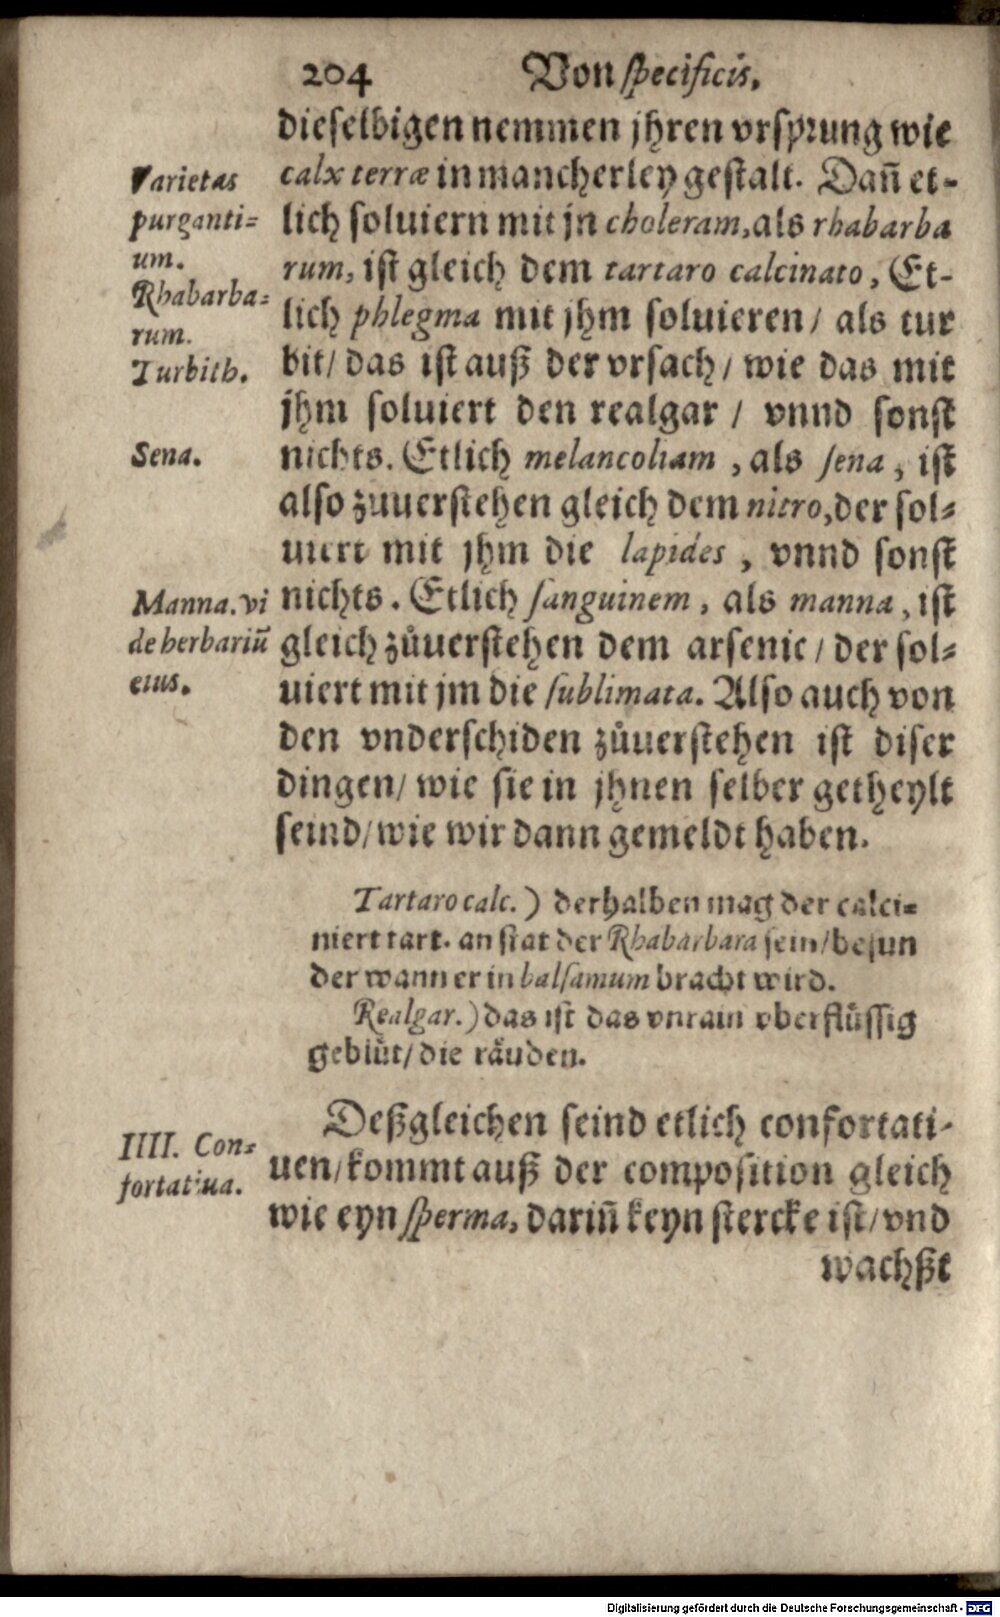 204 Von specificis.
dieselbigen nemmen jhren vrsprung wie
calx terræ in mancherley gestalt. Dañ et-
lich soluiern mit jn choleram, als rhabarba
rum, ist gleich dem tartaro calcinato, Et-
lich phlegma mit jhm soluieren / als tur
bit / das ist auß der vrsach / wie das mit
jhm soluiert den realgar / vnnd sonst
nichts. Etlich melancoliam, als sena, ist
also zuuerstehen gleich dem nitro, der sol-
uiert mit jhm die lapides, vnnd sonst
nichts. Etlich sanguinem, als manna, ist
gleich zůuerstehen dem arsenic / der sol-
uiert mit jm die sublimata. Also auch von
den vnderschiden zůuerstehen ist diser
dingen / wie sie in jhnen selber getheylt
seind / wie wir dann gemeldt haben.
Varietas
purganti-
um.
Rhabarba-
rum.
Turbith.
Sena.
Manna. vi
de herbariũ
eius.
Tartaro calc.) derhalben mag der calci-
niert tart. an stat der Rhabarbara sein / besun
der wann er in balsamum bracht wird.
Realgar.) das ist das vnrain vberflüssig
geblüt / die räuden.
IIII. Con-
fortatiua.
Deßgleichen seind etlich confortati-
uen / kommt auß der composition gleich
wie eyn sperma, dariñ keyn stercke ist / vnd
wachßt
Digitalisierung gefördert durch die Deutsche Forschungsgemeinschaft - DFG